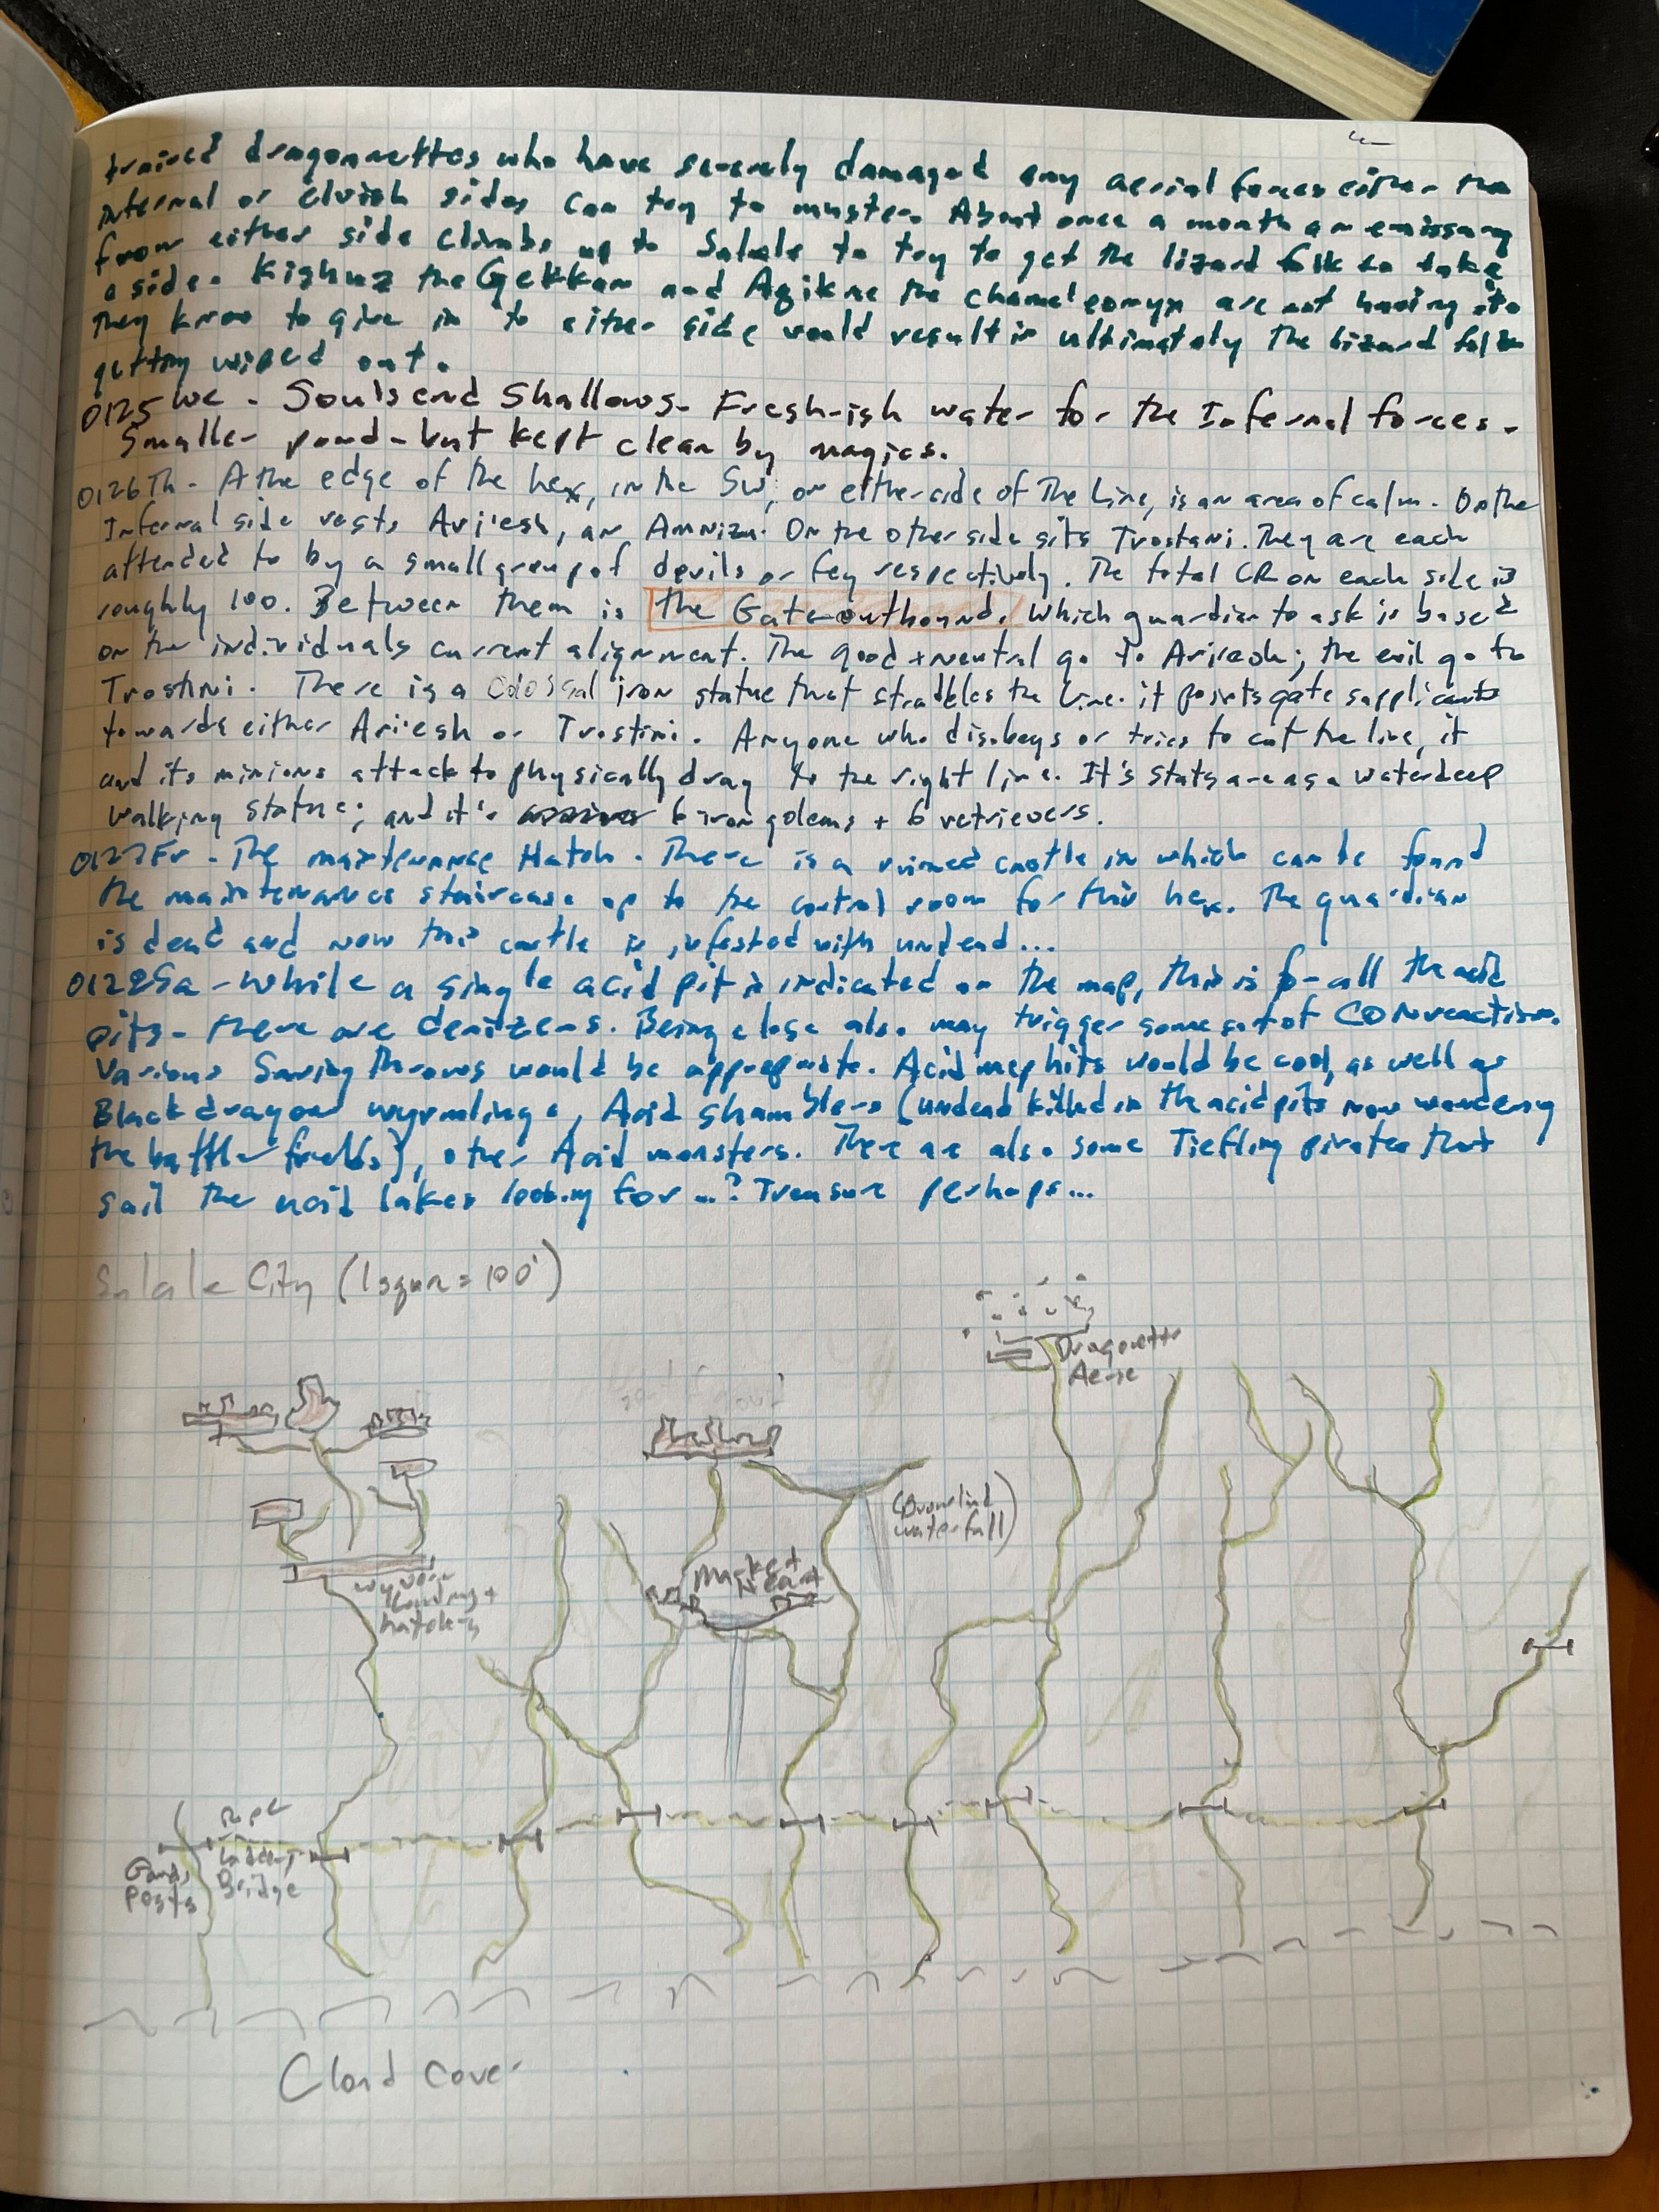 trained dragonnettes who have severely damaged any aerial forces either the
internal or elvish sides can try to muster. About once a month an emissary
from either side climbs up to Salale to try to get the lizard folk to take
a side. Kighuz the Gekkan and Azikne the chameleonyx are not having it.
They know to give in to either side would result in ultimately the lizard folk
getting wiped out.
0125 We - Soulsend Shallows. Fresh-ish water for the Infernal forces.
Smaller pond - but kept clean by magics.
0126 Th - A the edge of the hex, in the SW, on either side of The Line, is an area of calm. On the
Infernal side rests Ariesh, an Amnizu. On the other side sits Trostani. They are each
attended to by a small group of devils or fey respectively. The total CR on each side is
roughly 100. Between them is the Gate outbound. Which guardian to ask is based
on the individuals current alignment. The good + neutral go to Ariesh; the evil go to
Trostini. There is a Colossal iron statue that straddles the Line. it points gate supplicants
towards either Ariesh or Trostini. Anyone who disobeys or tries to cut the line, it
and its minions attack to physically drag to the right line. It's stats are as a waterdeep
walking statue; and it's 6 iron golems + 6 retrievers.
0127 Fr - The maintenance Hatch. There is a ruined castle in which can be found
the maintenance staircase up to the control room for this hex. The guardian
is dead and now this castle is infested with undead...
0128 Sa - While a single acid pit is indicated on the map, this is for all the acid
pits - there are denizens. Being close also may trigger some sort of CON reaction.
Various Saving throws would be appropriate. Acid mephits would be cool, as well as
Black dragon wyrmlings, Acid shamblers (undead killed in the acid pits now wandering
the battle fields), other Acid monsters. There are also some Tiefling pirates that
sail the acid lakes looking for ...? Treasure perhaps...
Salale City (1 square = 100')
Dragonette
Aerie
waterfall)
Market
Wyvern
Landing +
hatchery
Rope
Ladder
Bridge
Guard
Posts
Cloud cover